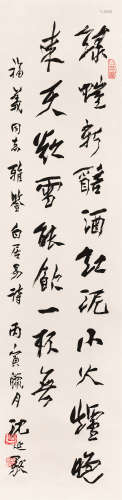 綠螘新醅酒紅泥小火爐晚
來天欲雪能飲一杯無
福義同志雅鑒白居易詩丙寅臘月沈延毅